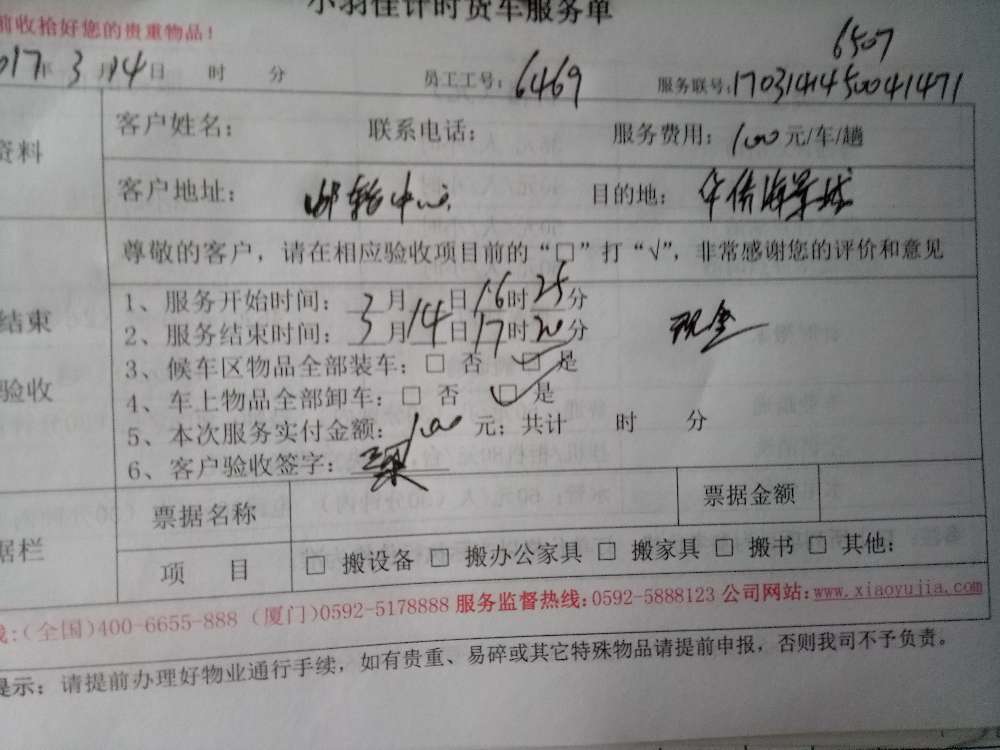 小羽佳计时货车服务单
前收拾好您的贵重物品！
6507
017年3月14日 时 分 员工工号：6469 服务联号：1703141450041471
资料
客户姓名： 联系电话： 服务费用：100元/车/趟
客户地址：邮轮中心 目的地：华侨海景城
尊敬的客户，请在相应验收项目前的“□”打“√”，非常感谢您的评价和意见
结束
验收
1、服务开始时间：3月14日16时25分
2、服务结束时间：3月14日17时20分
现金
3、候车区物品全部装车：□ 否 ☑ 是
4、车上物品全部卸车：□ 否 ☑ 是
5、本次服务实付金额：100元；共计 时 分
6、客户验收签字：
据栏
票据名称 票据金额
项 目 □ 搬设备 □ 搬办公家具 □ 搬家具 □ 搬书 □ 其他：
线：(全国)400-6655-888 (厦门)0592-5178888 服务监督热线：0592-5888123 公司网站：www.xiaoyujia.com
提示：请提前办理好物业通行手续，如有贵重、易碎或其它特殊物品请提前申报，否则我司不予负责。